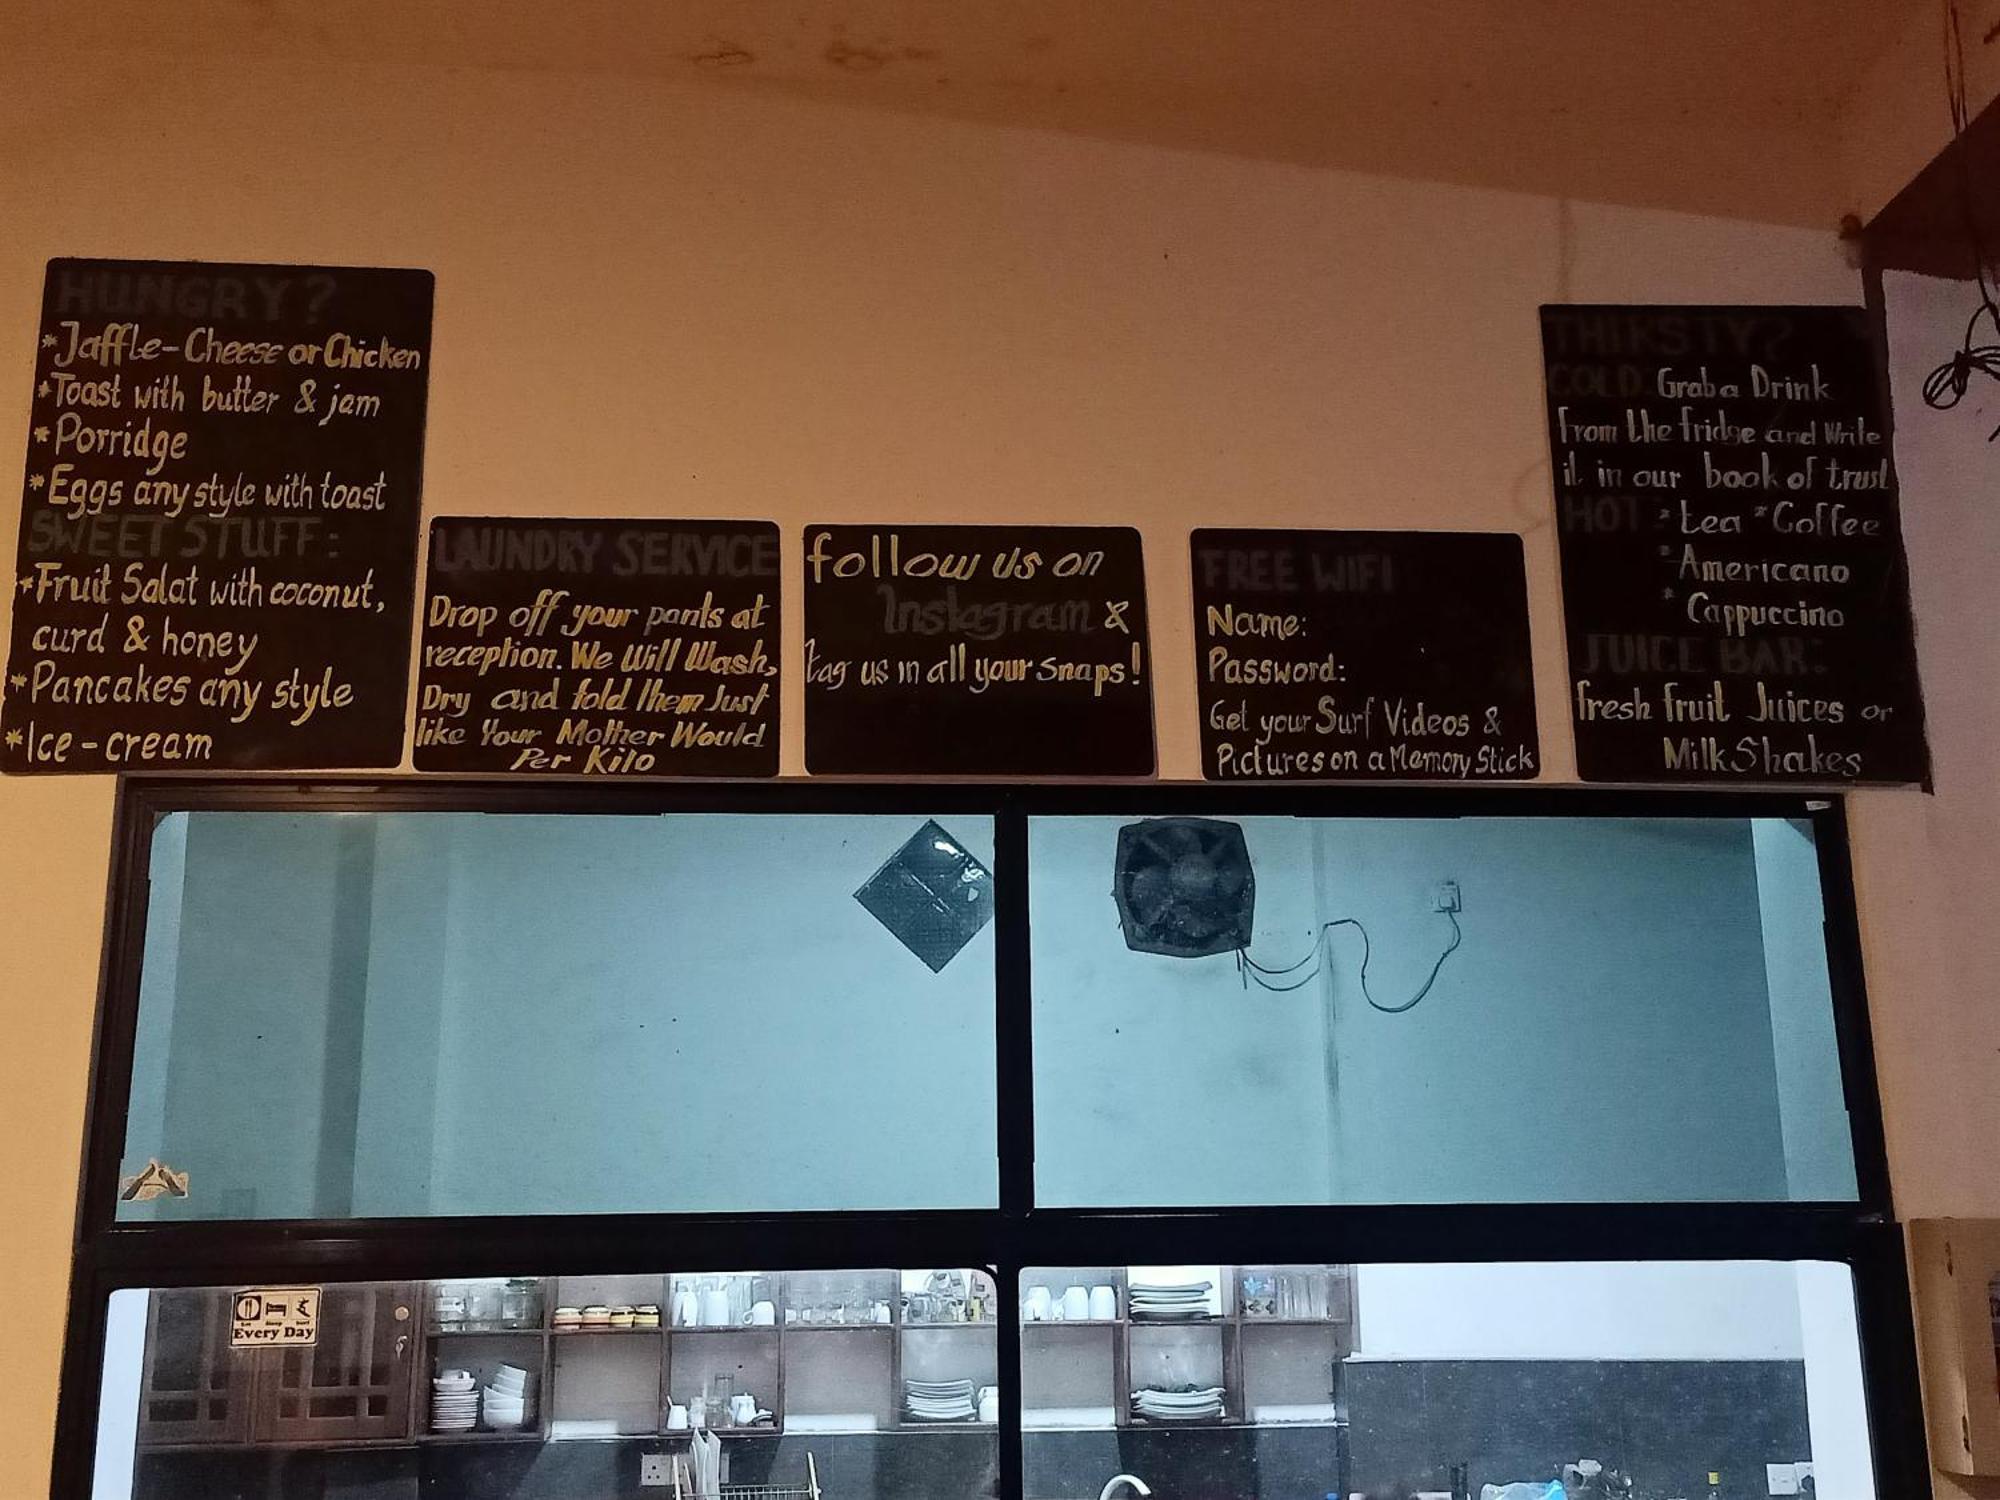 HUNGRY?
*Jaffle-Cheese or Chicken
*Toast with butter & jam
*Porridge
*Eggs any style with toast
SWEET STUFF:
*Fruit Salat with coconut,
curd & honey
*Pancakes any style
*Ice-cream
LAUNDRY SERVICE
Drop off your pants at
reception. We Will Wash,
Dry and fold them Just
like Your Mother Would
Per Kilo
follow us on
Instagram &
tag us in all your snaps!
FREE WIFI
Name:
Password:
Get your Surf Videos &
Pictures on a Memory Stick
THIRSTY?
COLD: Grab a Drink
from the fridge and Write
it in our book of trust
HOT: *tea *Coffee
*Americano
*Cappuccino
JUICE BAR:
fresh fruit Juices or
MilkShakes
Eat Sleep Surf
Every Day